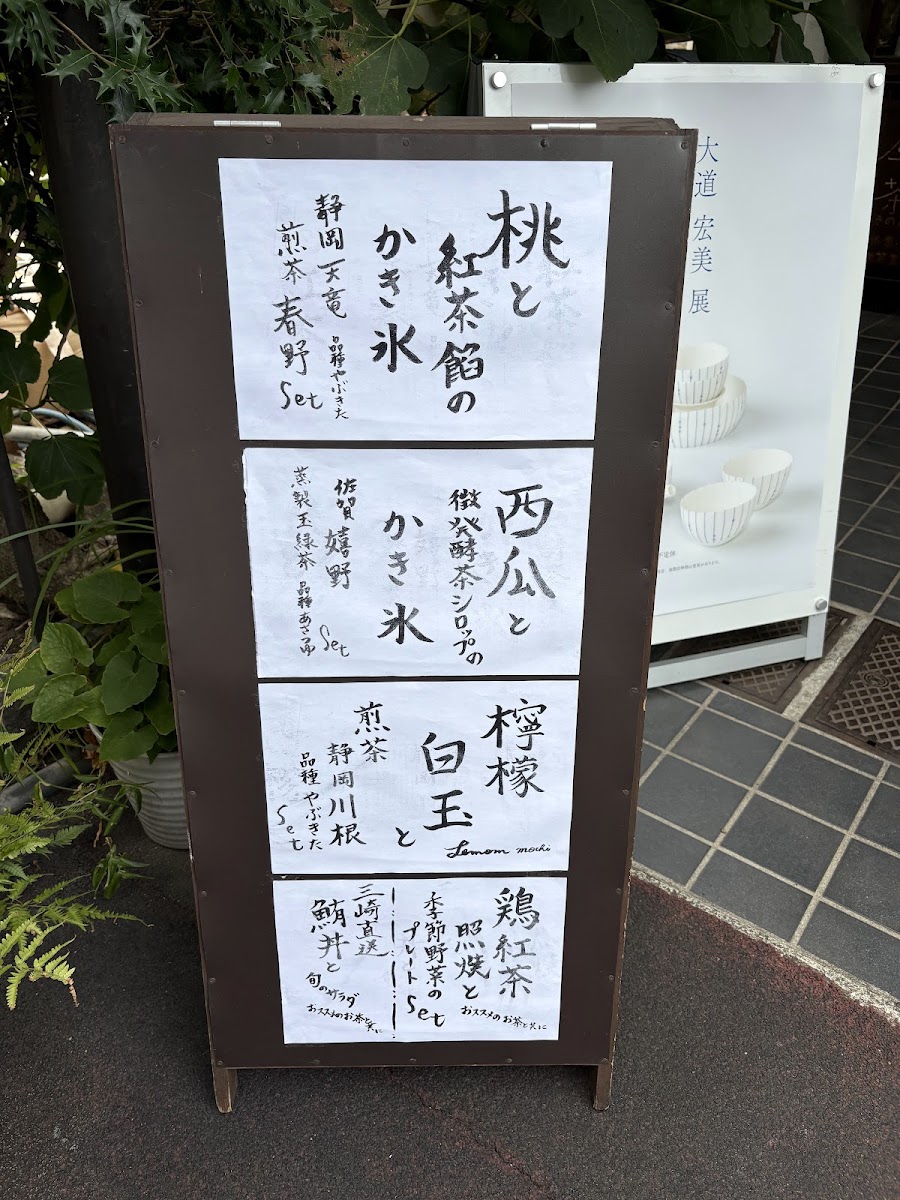 桃と
紅茶餡の
かき氷
静岡 天竜 品種やぶきた
煎茶 春野 Set
西瓜と
微発酵茶シロップの
かき氷
佐賀 嬉野
蒸製玉緑茶 品種あさつゆ Set
檸檬
白玉と
Lemom mochi
煎茶
静岡川根
品種 やぶきた Set
鶏紅茶
照焼と
季節野菜の
プレート Set
おススメのお茶と共に
三崎直送
鮪丼と
旬のサラダ
おススメのお茶と共に
大道 宏美 展